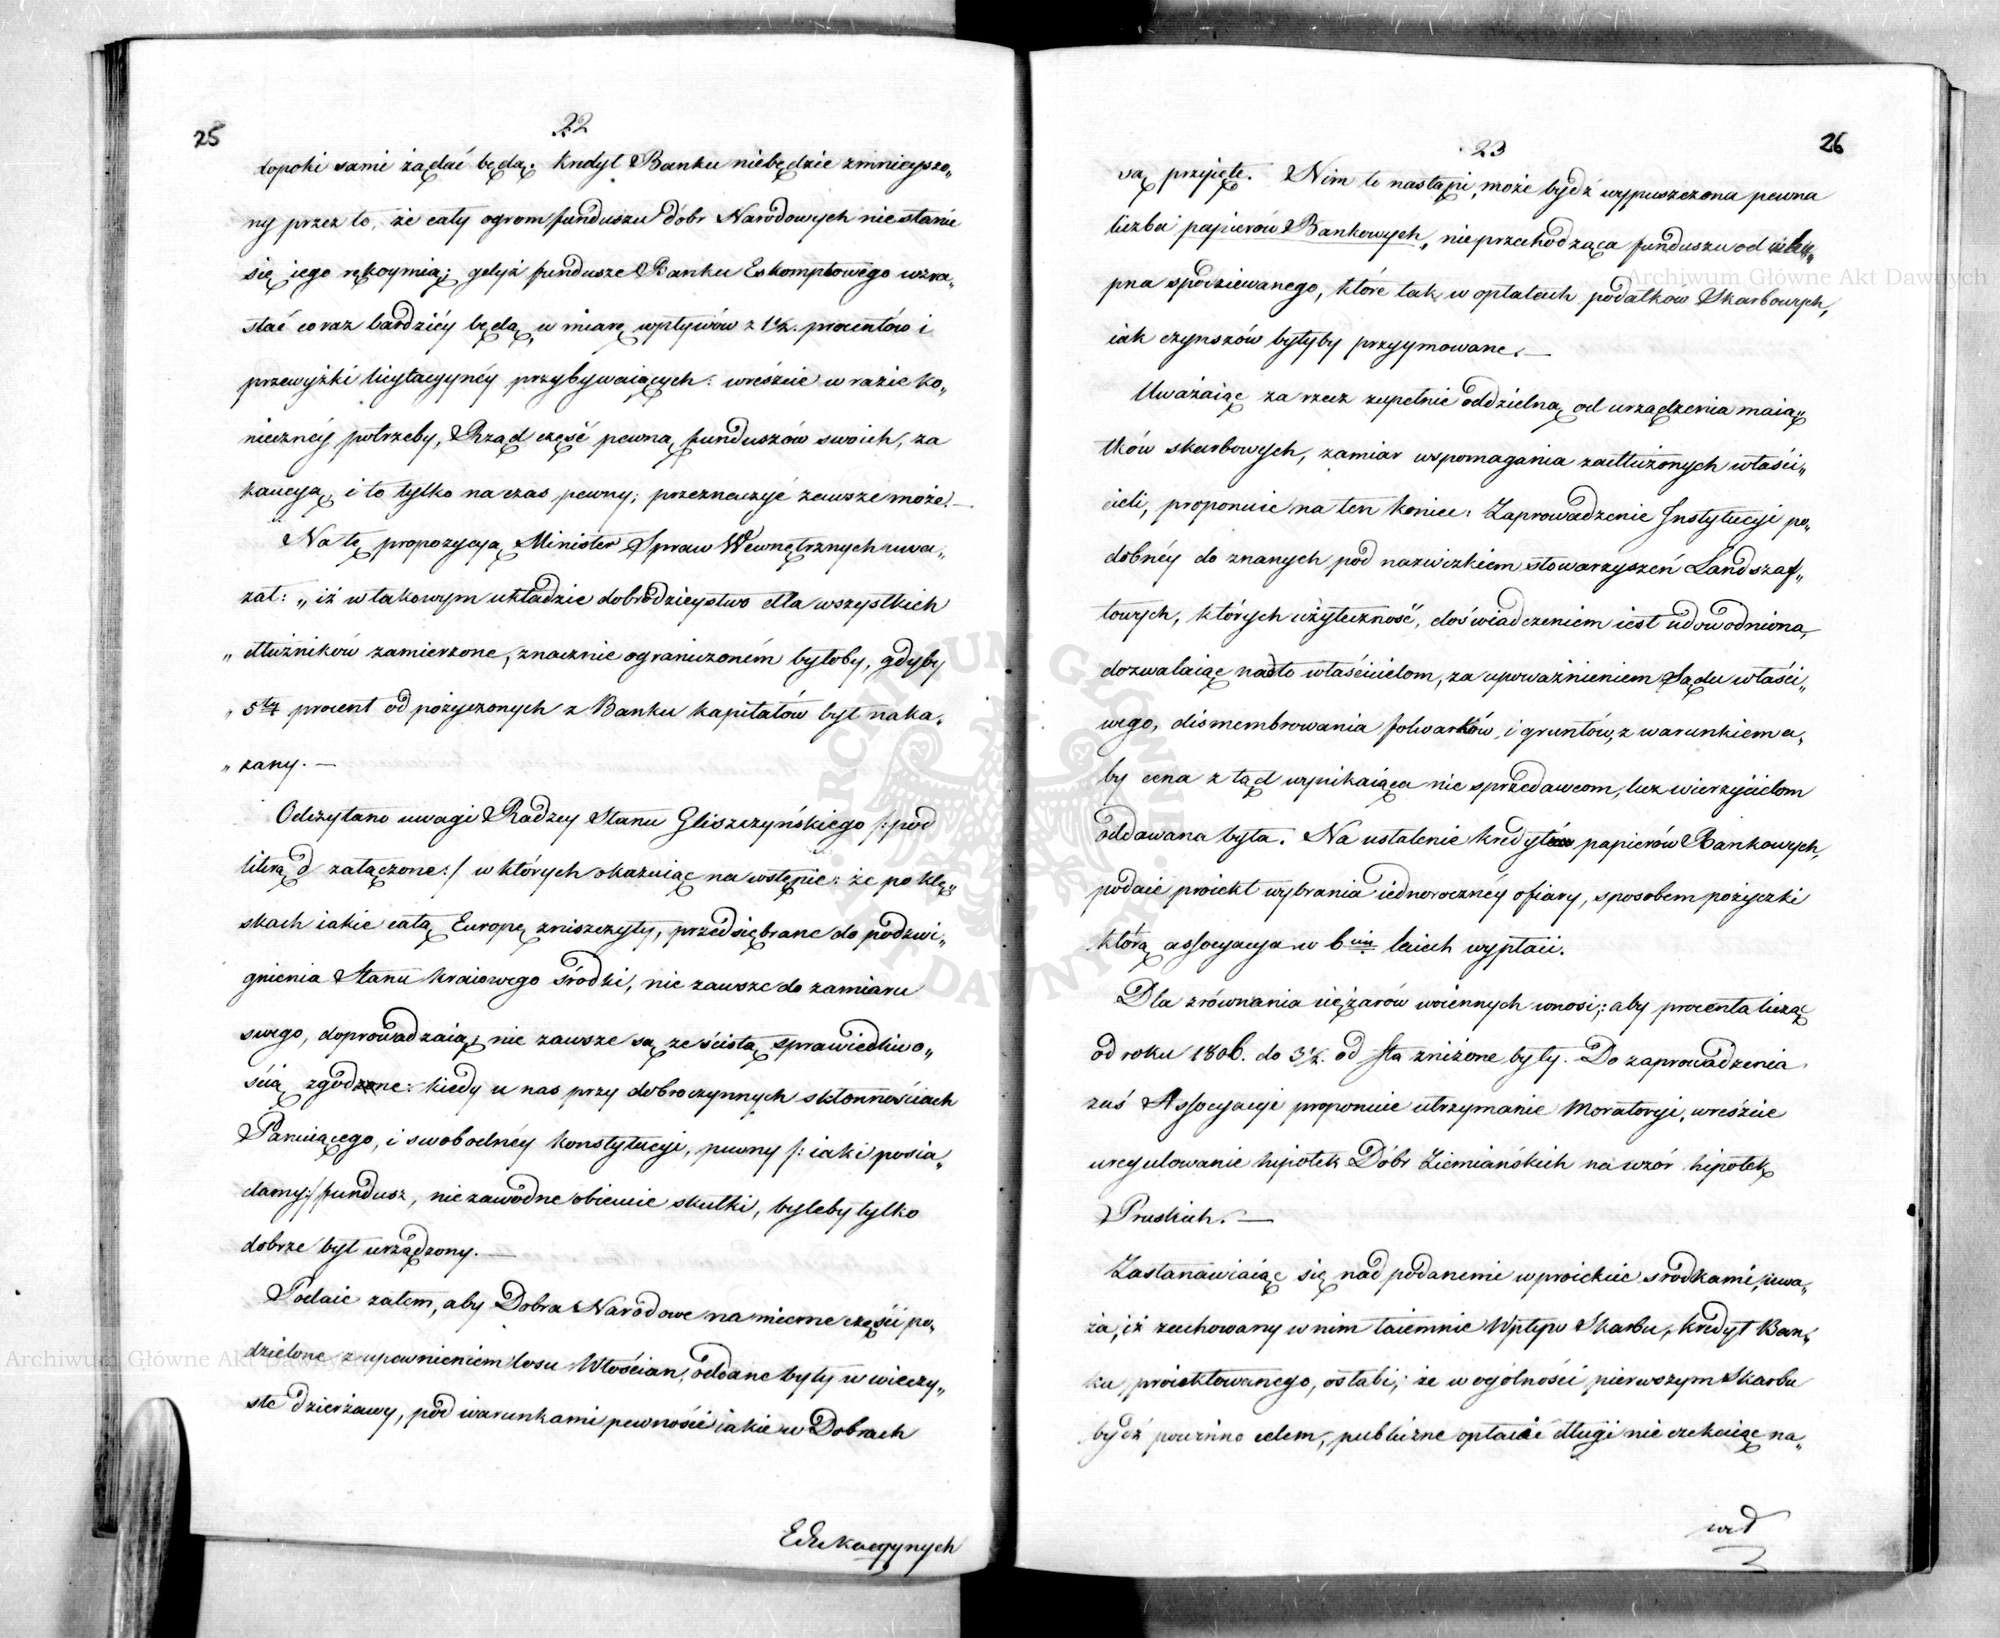 25
22
dopoki sami żądać będą; Kredyt Banku niebędzie zmnieyszo„
ny przez to, że cały ogrom funduszu dóbr Narodowych nie stanie
się iego rękoymią; gdyż fundusze Banku Eskomptowego wzra„
stać coraz bardziéy będą, w miarę wpływów z 1½. procentów i
przewyżki licytacyynéy przybywaiących: wreście w razie ko„
niecznéy potrzeby, Rząd część pewną funduszów swoich, za
kaucyą, i to tylko na czas pewny, przeznaczyć zawsze może. —
Na tę propozycyą Minister Spraw Wewnętrznych uwa„
żał: „iż w takowym układzie dobrodzieystwo dla wszystkich
„dłużników zamierzone, znacznie ograniczoném byłoby, gdyby
„5ty procent od pożyczonych z Banku kapitałów był naka„
„zany. —
Odczytano uwagi Radzcy Stanu Gliszczyńskiego /:pod
literą d załączone:/ w których okazuiąc na wstępie: że po klę„
skach iakie całą Europę zniszczyły, przedsiębrane do podzwi„
gnienia Stanu kraiowego środki, nie zawsze do zamiaru
swego, doprowadzaią, nie zawsze są ze ścisłą sprawiedliwo„
ścią zgodne: kiedy u nas przy dobroczynnych skłonnościach
Panuiącego, i swobodnéy konstytucyi, pewny /:iaki posia„
damy:/ fundusz, niezawodne obiecuie skutki, byleby tylko
dobrze był urządzony. —
Podaie zatem, aby Dobra Narodowe na mierne części po„
dzielone, z upewnieniem losu Włościan, oddane były w wieczy„
ste dzierżawy, pod warunkami pewności iakie w Dobrach
Edukacyynych
26
23
są przyięte. Nim to nastąpi, może bydź wypuszczona pewna
liczba papierów Bankowych, nieprzechodząca funduszu od wku„
pna spodziewanego, które tak w opłatach podatków Skarbowych,
iak czynszów byłyby przyymowane. —
Uważaiąc za rzecz zupełnie oddzielną od urządzenia maią„
tków skarbowych, zamiar wspomagania zadłużonych właści„
cieli, proponuie na ten koniec: Zaprowadzenie Instytucyi po„
dobnéy do znanych pod nazwizkiem stowarzyszeń Landszaf„
towych, których użyteczność, doświadczeniem iest udowodnioną,
dozwalaiąc nadto właścicielom, za upoważnieniem Sądu właści„
wego, dismembrowania folwarków, i gruntów, z warunkiem a„
by cena z tąd wynikaiąca nie sprzedawcom, lecz wierzycielom
oddawana była. Na ustalenie kredytu papierów Bankowych,
podaie proiekt wybrania iednorocznéy ofiary, sposobem pożyczki
którą assocyacya w 6ciu latach wypłaci.
Dla zrównania ciężarów woiennych wnosi,: aby procenta licząc
od roku 1806. do 3½. od sta zniżone były. Do zaprowadzenia
zaś Assocyacyi proponuie utrzymanie Moratoryi, wreście
uregulowanie hipotek Dóbr Ziemiańskich na wzór hipotek
Pruskich. —
Zastanawiaiąc się nad podanemi w proiekcie środkami, uwa„
ża, iż zachowany w nim taiemnie Wpływ Skarbu, kredyt Ban„
ku proiektowanego, osłabi,: że w ogólności pierwszym Skarbu
bydź powinno celem, publiczne opłacić długi nie czekaiąc na„
wet
Archiwum Główne Akt Dawnych
Archiwum Główne Akt Dawnych
ARCHIWUM GŁÓWNE AKT DAWNYCH